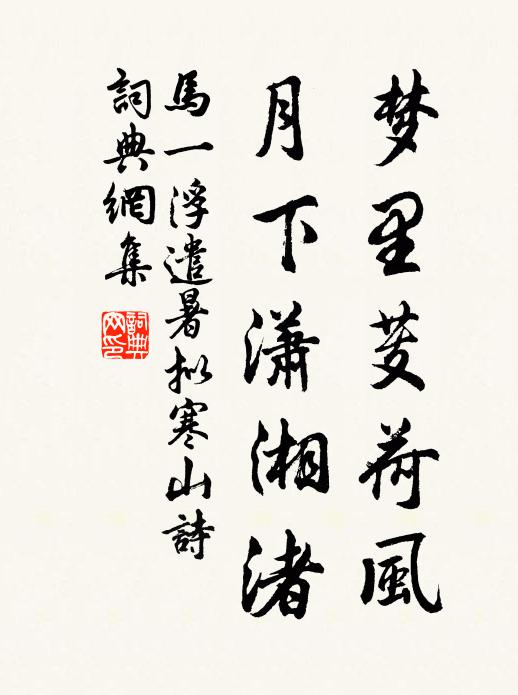 梦里芰荷風
月下瀟湘渚
馬一浮遣暑拟寒山詩
詞典網集
詞典网印